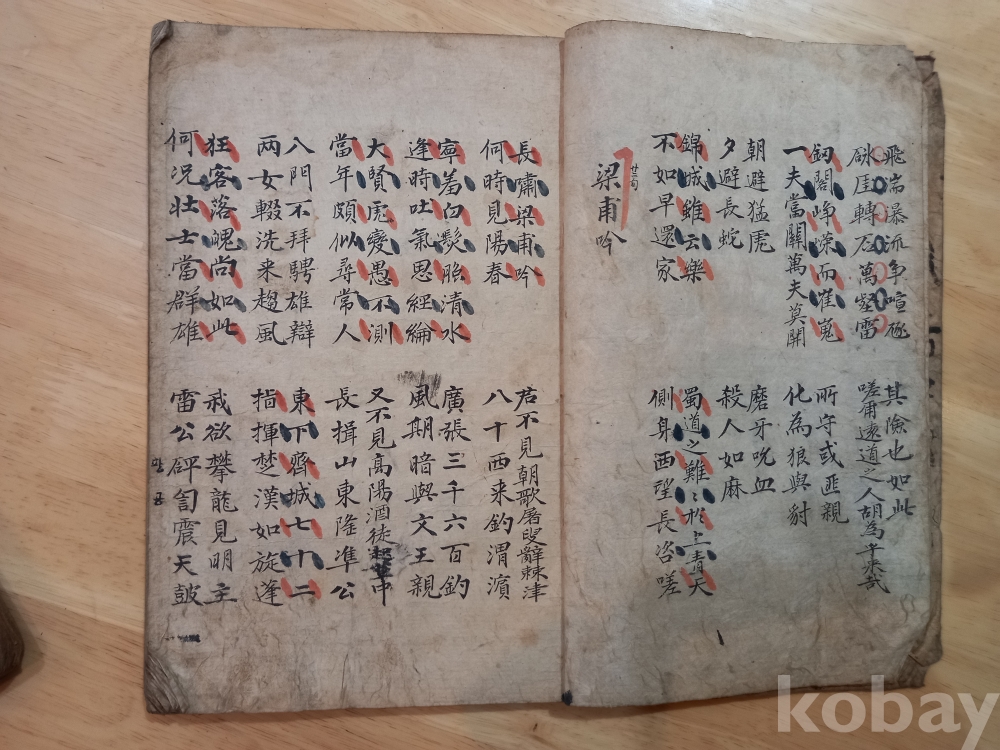 飛湍瀑流争喧豗
砯厓轉石萬壑雷
其險也如此
嗟爾遠道之人胡為乎来哉
釼閣崢嶸而崔嵬
一夫當關萬夫莫開
所守或匪親
化為狼與豺
朝避猛虎
夕避長蛇
磨牙吮血
殺人如麻
錦城雖云樂
不如早還家
蜀道之難〻於上青天
側身西望長咨嗟
梁甫吟
長嘯梁甫吟
何時見陽春
君不見朝歌屠叟辭棘津
八十西来釣渭濱
寧羞白髮照清水
逢時吐氣思經綸
廣張三千六百釣
風期暗與文王親
大賢虎變愚不測
當年頗似尋常人
又不見高陽酒徒起草中
長揖山東隆準公
八門不拜騁雄辯
两女輟洗来趨風
東下齊城七十二
指揮楚漢如旋蓬
狂客落魄尚如此
何况壮士當群雄
我欲攀龍見明主
雷公砰訇震天鼓
팡
굉
kobay